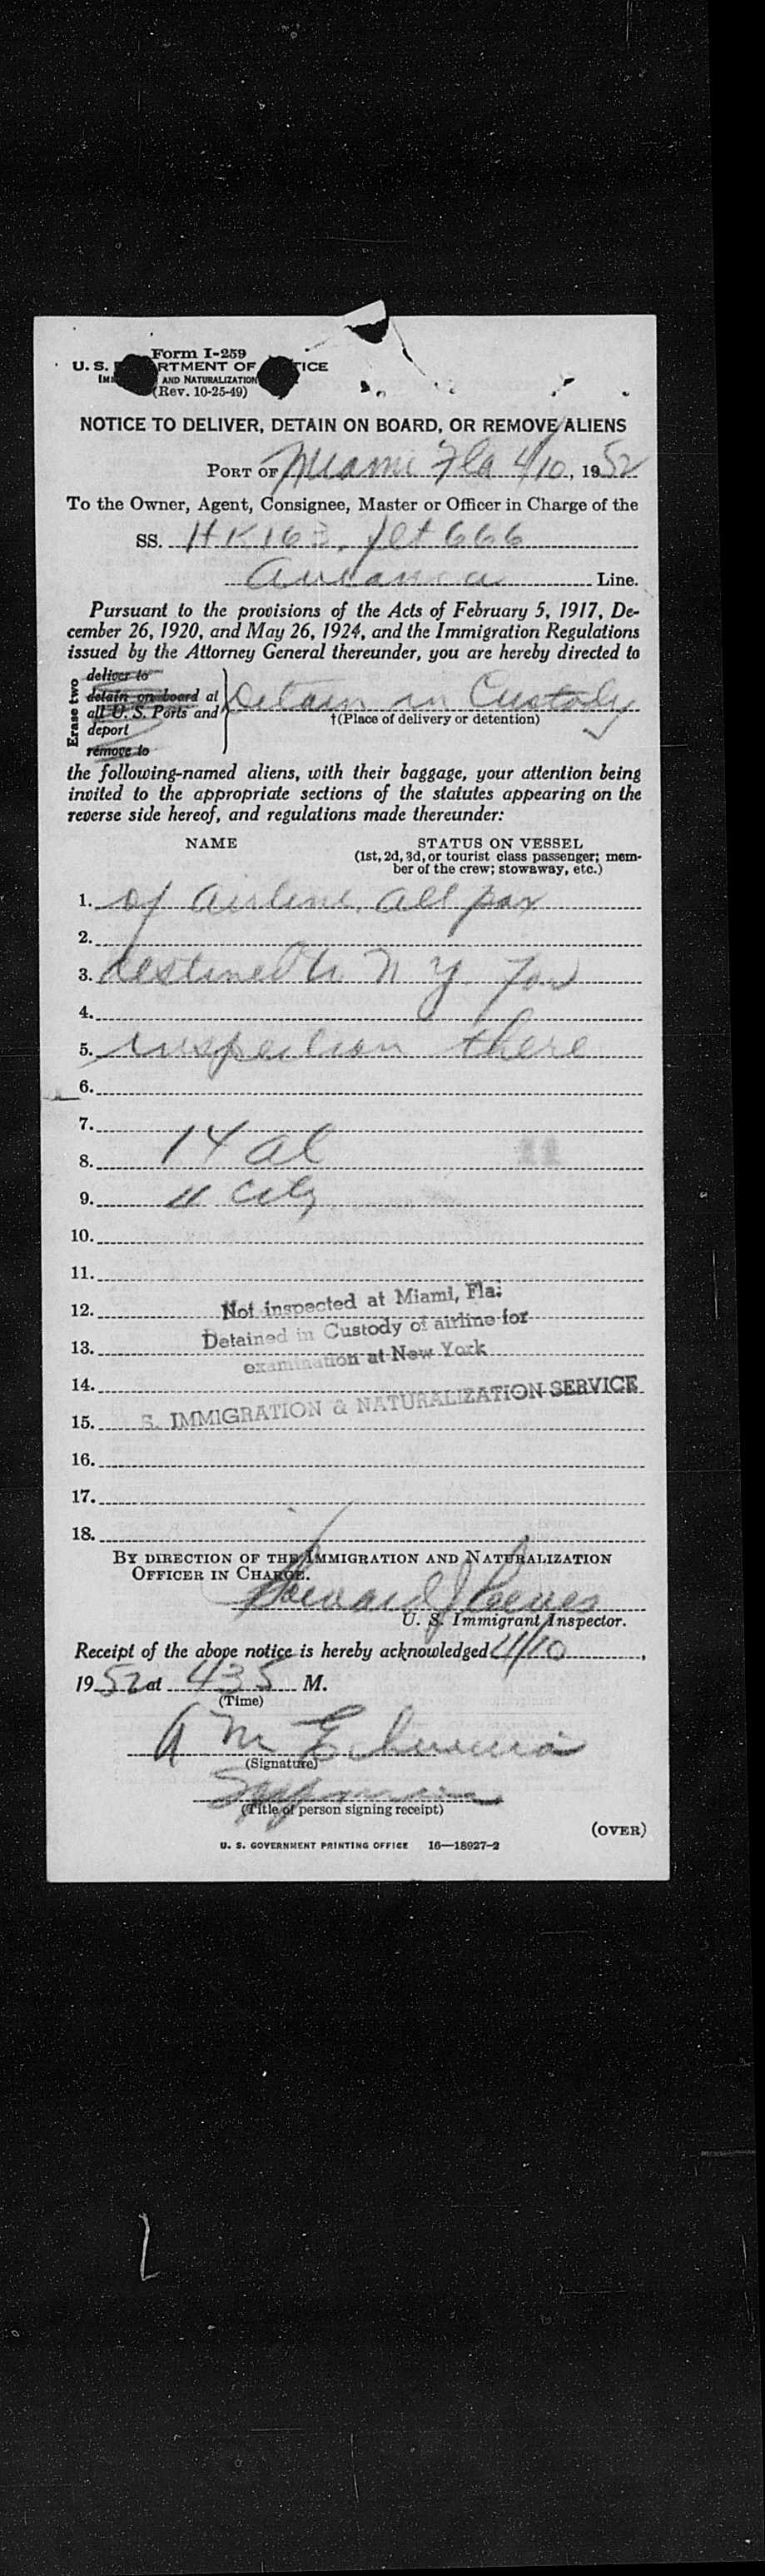 Form I-259
U. S. RTMENT OF TICE
AND NATURALIZATION
(Rev. 10-25-49)
NOTICE TO DELIVER, DETAIN ON BOARD, OR REMOVE ALIENS
PORT OF Miami Fla 4/10, 1952
To the Owner, Agent, Consignee, Master or Officer in Charge of the
SS. HK 163, flt 666
Avianca Line.
Pursuant to the provisions of the Acts of February 5, 1917, De-
cember 26, 1920, and May 26, 1924, and the Immigration Regulations
issued by the Attorney General thereunder, you are hereby directed to
Erase two
deliver to
detain on board at
all U. S. Ports and
deport
remove to
Detain in Custody
†(Place of delivery or detention)
the following-named aliens, with their baggage, your attention being
invited to the appropriate sections of the statutes appearing on the
reverse side hereof, and regulations made thereunder:
NAME STATUS ON VESSEL
(1st, 2d, 3d, or tourist class passenger; mem-
ber of the crew; stowaway, etc.)
1. of airline, all pax
2.
3. destined to N Y. for
4.
5. inspection there
6.
7.
8. 14 al
9. 11
10.
11.
12. Not inspected at Miami, Fla.
13. Detained in Custody of airline for
examination at New York
14.
15. S. IMMIGRATION & NATURALIZATION SERVICE
16.
17.
18.
BY DIRECTION OF THE IMMIGRATION AND NATURALIZATION
OFFICER IN CHARGE.
U. S. Immigrant Inspector.
Receipt of the above notice is hereby acknowledged 4/10,
1952 at 435 M.
(Time)
A M
(Signature)
(Title of person signing receipt)
(OVER)
U. S. GOVERNMENT PRINTING OFFICE 16—18927-2